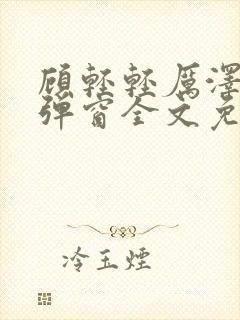 顾轻轻厉泽
弹窗全文免
冷玉烟